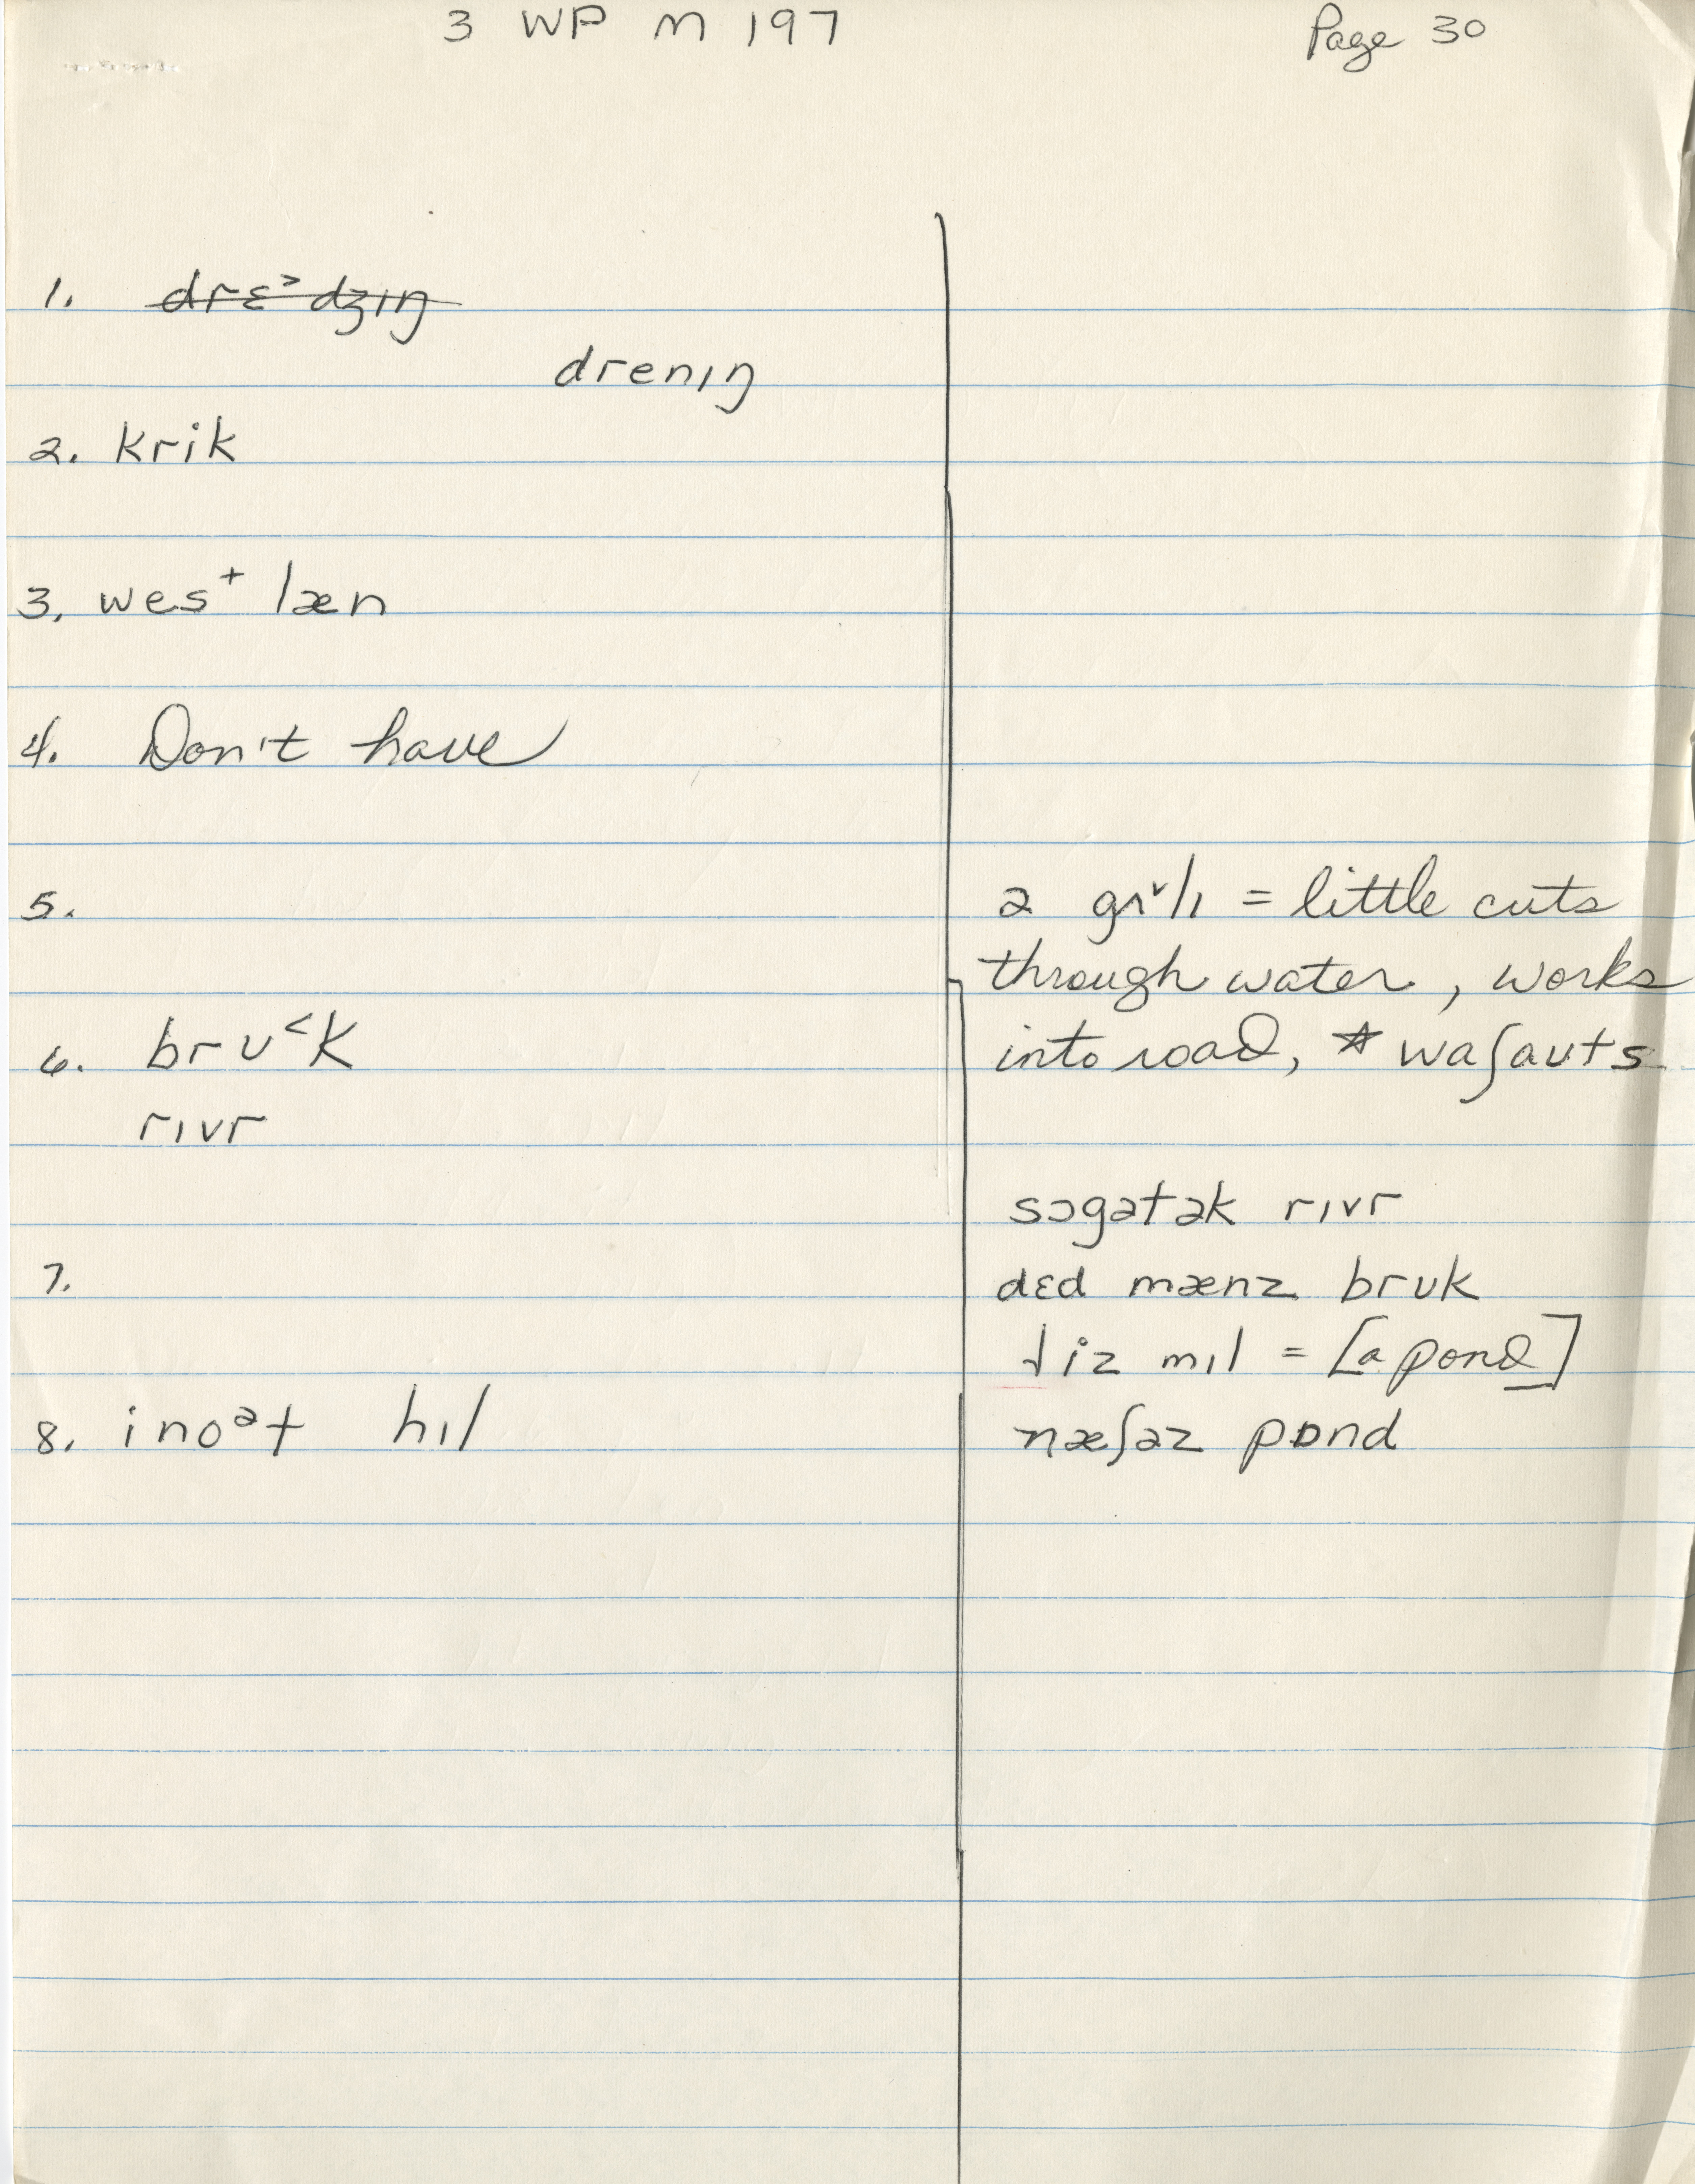 3 WP M 197 Page 30
1. drɛ˃dʒɪŋ
drenɪŋ
2. krik
3. wes⁺ læn
4. Don't have
5. ə gʌ˅lɪ = little cuts
through water, works
into road, * waʃauts
6. brʊ˂k
rɪvr
sɔgətək rɪvr
7. dɛd mænz brʊk
iz mɪl = [a pond]
8. ino ᵊt hɪl næʃəz pɒnd